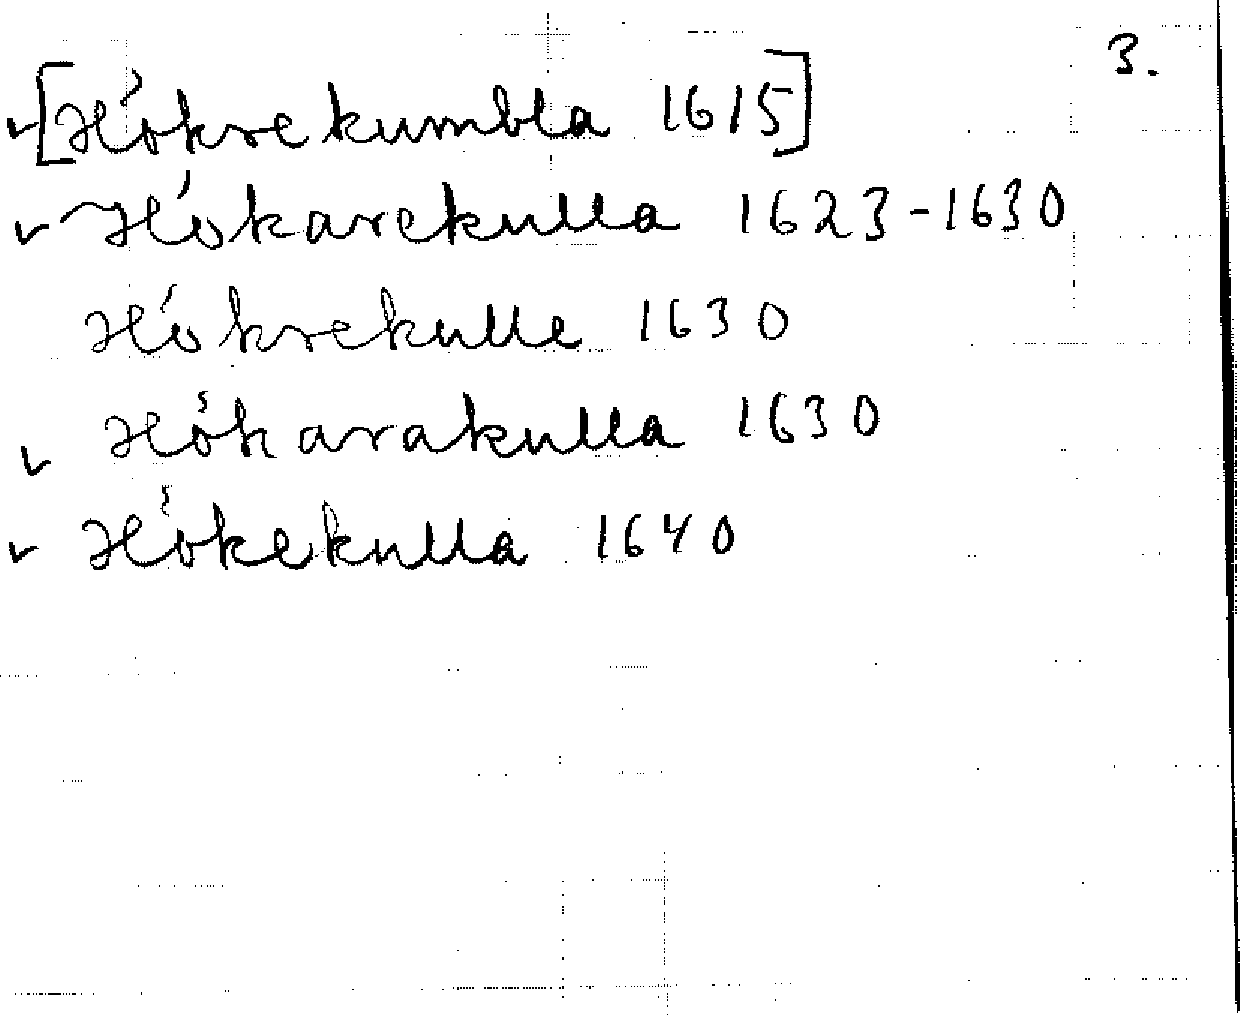 3.
✓ [Hökrekumbla 1615]
✓ Hökarekulla 1623-1630
Hökrekulle 1630
✓ Hökarakulla 1630
✓ Hökekulla 1640